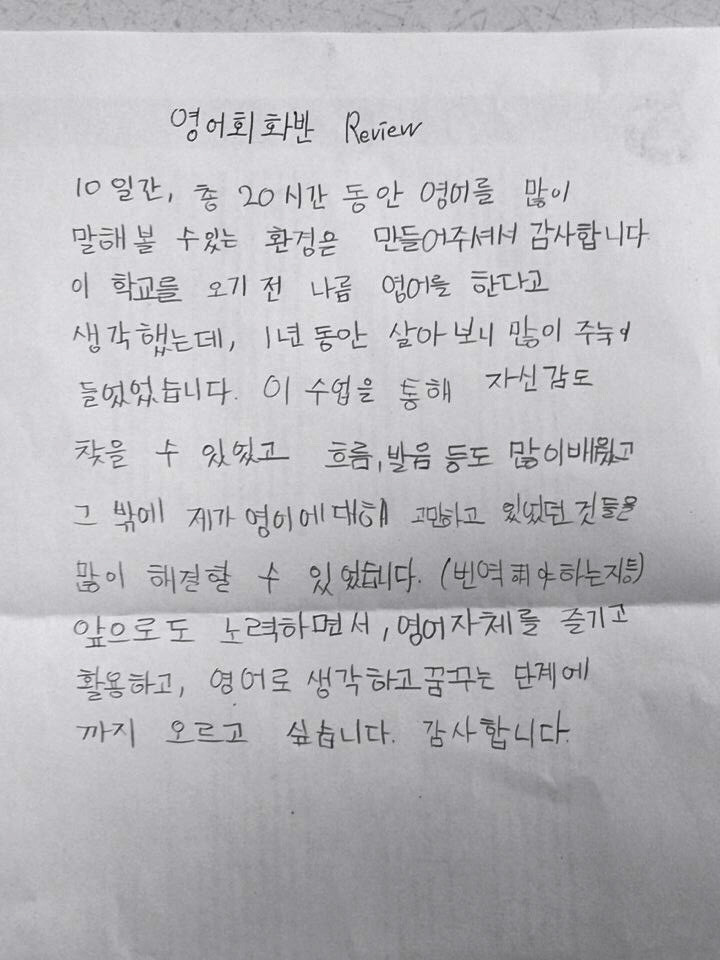 영어회화반 Review
10일간, 총 20시간 동안 영어를 많이
말해 볼 수있는 환경은 만들어주셔서 감사합니다
이 학교를 오기 전 나름 영어를 한다고
생각했는데, 1년 동안 살아보니 많이 주눅이
들었었습니다. 이 수업을 통해 자신감도
찾을 수 있었고 흐름, 발음 등도 많이배웠고
그 밖에 제가 영어에대해 고민하고 있었던 것들은
많이 해결할 수 있었습니다. (번역해야하는지등)
앞으로도 노력하면서, 영어자체를 즐기고
활용하고, 영어로 생각하고꿈꾸는 단계에
까지 오르고 싶습니다. 감사합니다.